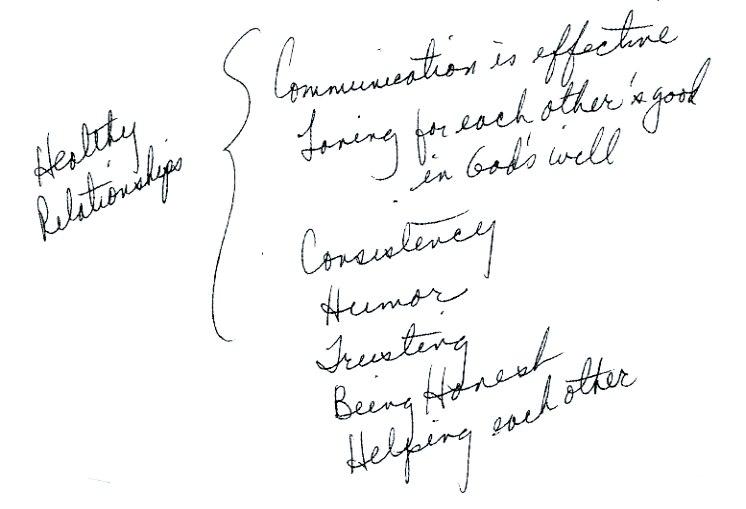 Healthy
Relationships
Communication is effective
Loving for each other's good
in God's will
Consistency
Humor
Trusting
Being Honest
Helping each other